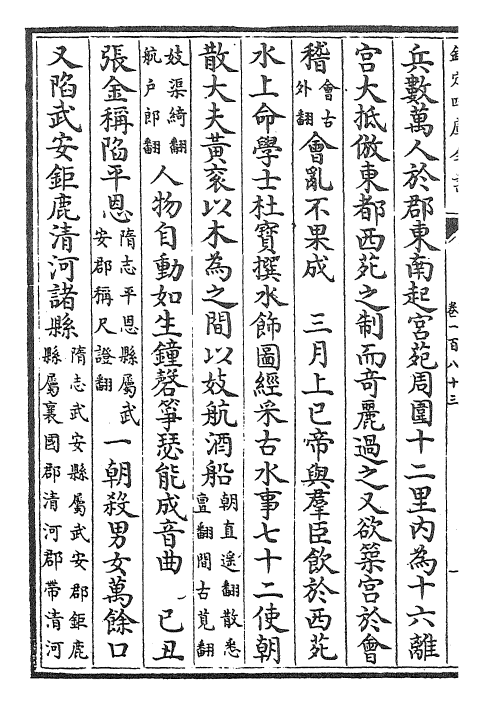 欽定四庫全書
卷一百八十三
兵數萬人於郡東南起宮苑周圍十二里內為十六離
宮大抵倣東都西苑之制而奇麗過之又欲築宮於會
稽會古外翻會亂不果成　三月上巳帝與羣臣飲於西苑
水上命學士杜寶撰水飾圖經采古水事七十二使朝
散大夫黃袞以木為之間以妓航酒船朝直遥翻散悉亶翻間古莧翻
妓渠綺翻航户郎翻人物自動如生鐘磬箏瑟能成音曲　已丑
張金稱陷平恩隋志平恩縣屬武安郡稱尺證翻一朝殺男女萬餘口
又陷武安鉅鹿清河諸縣隋志武安縣屬武安郡鉅鹿縣屬襄國郡清河郡帶清河